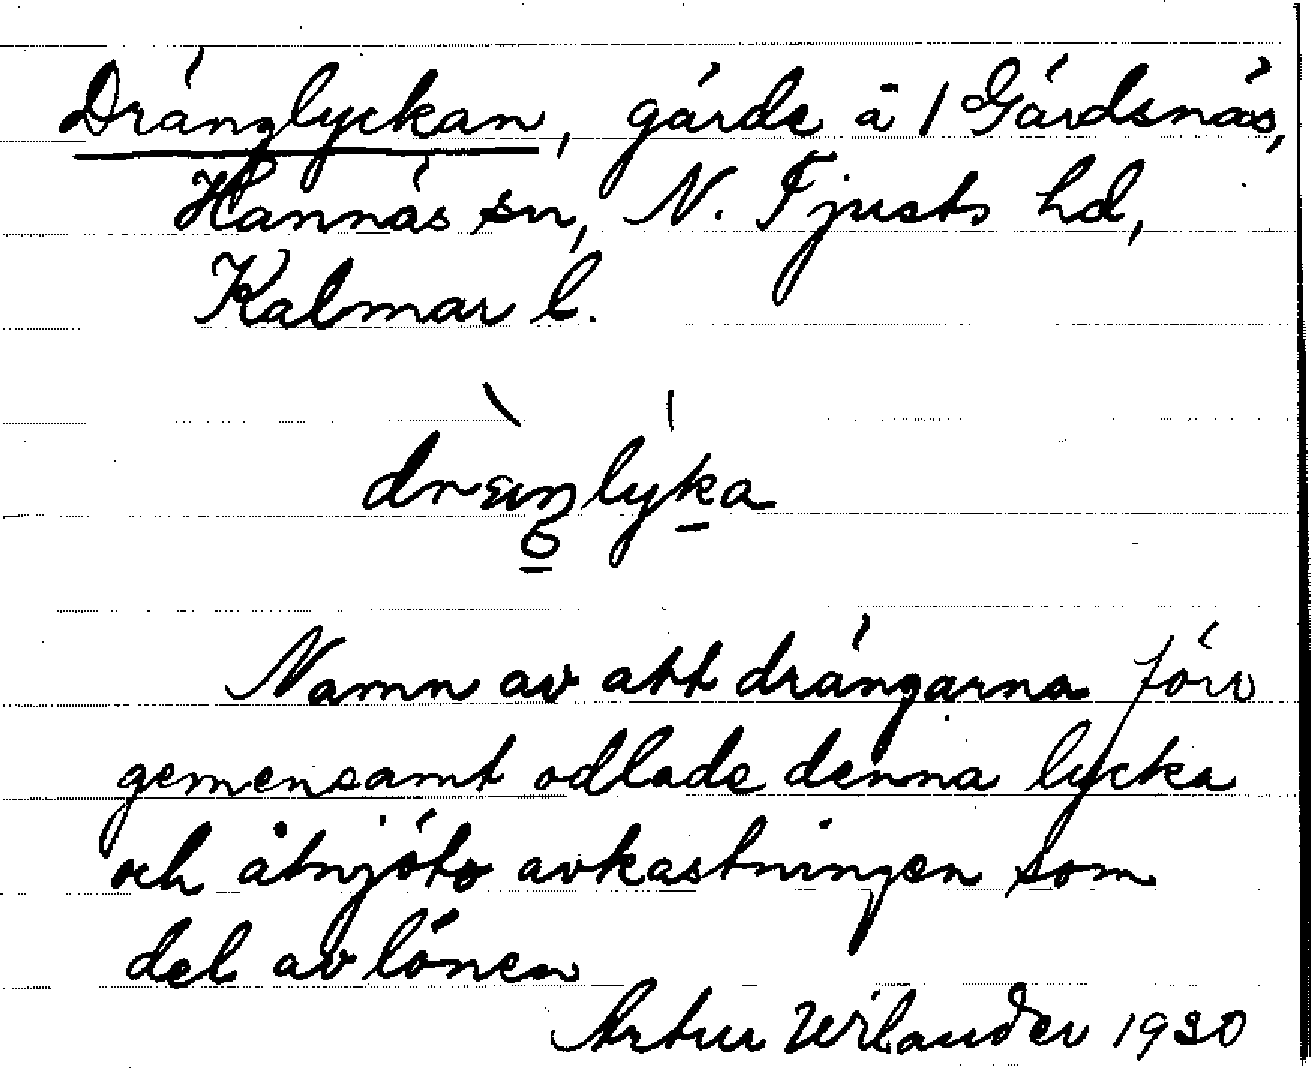 Dränglyckan, gärde ā 1 Gärdsnäs,
Hannäs sn, N. Tjusts hd,
Kalmar l.
Namn av att drängarna förr
gemensamt odlade denna lycka
och åtnjöto avkastningen som
del av lönen
Artur Wilander 1930